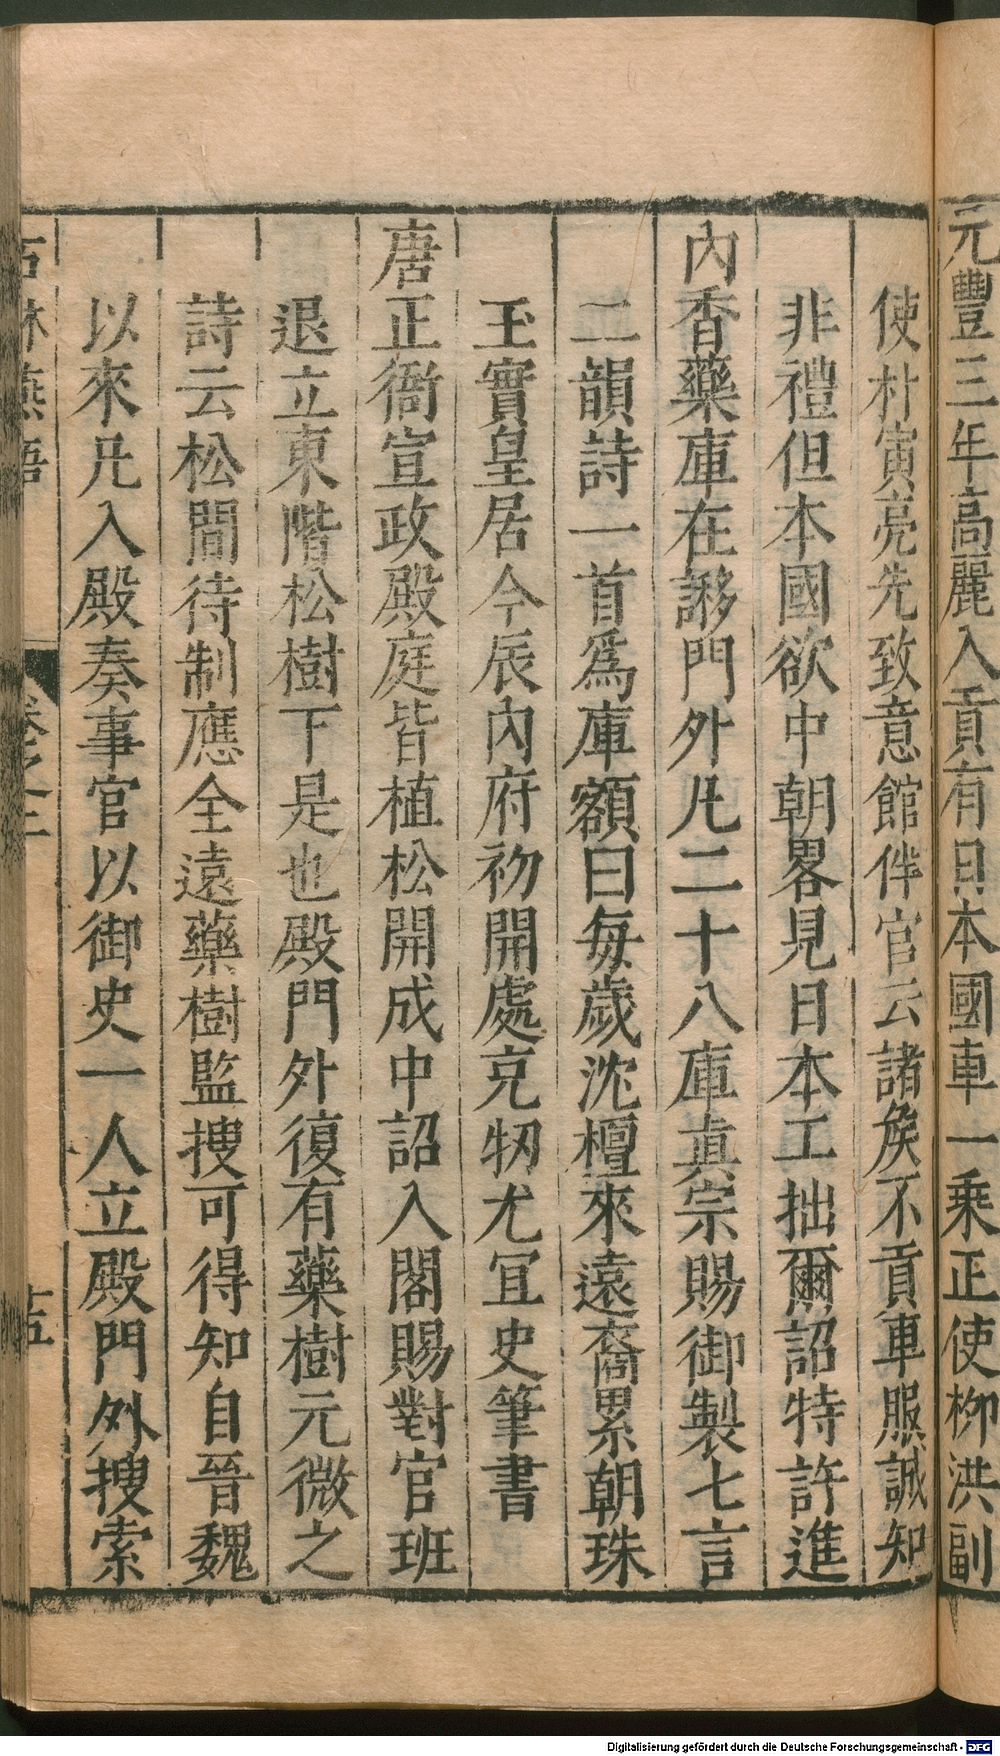 元豐三年高麗入貢有日本國車一乘正使柳洪副
使朴寅亮先致意館伴官云諸矦不貢車服誠知
非禮但本國欲中朝畧見日本工拙爾詔特許進
內香藥庫在謻門外凡二十八庫真宗賜御製七言
二韻詩一首爲庫額曰每歲沈檀來遠裔累朝珠
玉實皇居今辰內府初開處充牣尤宜史筆書
唐正衙宣政殿庭皆植松開成中詔入閣賜對官班
退立東階松樹下是也殿門外復有藥樹元微之
詩云松間待制應全遠藥樹監搜可得知自晉魏
以來凡入殿奏事官以御史一人立殿門外搜索
石林燕語
卷之二
十五
Digitalisierung gefördert durch die Deutsche Forschungsgemeinschaft - DFG